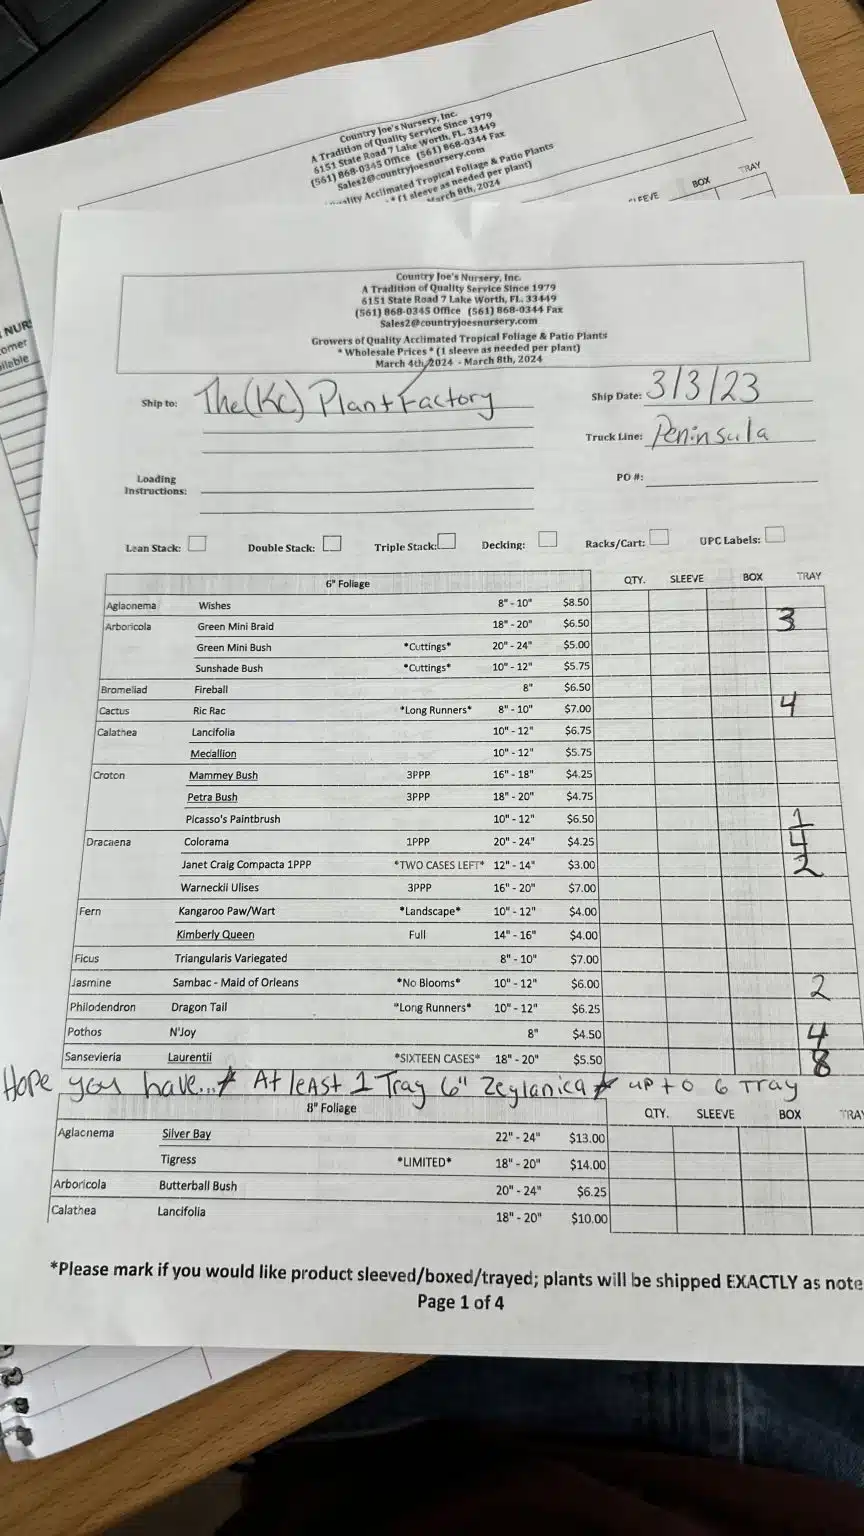 Country Joe's Nursery, Inc.
A Tradition of Quality Service Since 1979
6151 State Road 7 Lake Worth, FL. 33449
(561) 868-0345 Office (561) 868-0344 Fax
Sales2@countryjoesnursery.com
Quality Acclimated Tropical Foliage & Patio Plants
* (1 sleeve as needed per plant)
March 8th, 2024
SLEEVE BOX TRAY
NUR
omer
ailable
Country Joe's Nursery, Inc.
A Tradition of Quality Service Since 1979
6151 State Road 7 Lake Worth, FL. 33449
(561) 868-0345 Office (561) 868-0344 Fax
Sales2@countryjoesnursery.com
Growers of Quality Acclimated Tropical Foliage & Patio Plants
* Wholesale Prices * (1 sleeve as needed per plant)
March 4th, 2024 - March 8th, 2024
Ship to: The (KC) Plant Factory Ship Date: 3/3/23
Truck Line: Peninsula
Loading Instructions: PO #:
Lean Stack: Double Stack: Triple Stack: Decking: Racks/Cart: UPC Labels:
6" Foliage QTY. SLEEVE BOX TRAY
Aglaonema Wishes 8" - 10" $8.50
Arboricola Green Mini Braid 18" - 20" $6.50 3
Green Mini Bush *Cuttings* 20" - 24" $5.00
Sunshade Bush *Cuttings* 10" - 12" $5.75
Bromeliad Fireball 8" $6.50
Cactus Ric Rac *Long Runners* 8" - 10" $7.00 4
Calathea Lancifolia 10" - 12" $6.75
Medallion 10" - 12" $5.75
Croton Mammey Bush 3PPP 16" - 18" $4.25
Petra Bush 3PPP 18" - 20" $4.75
Picasso's Paintbrush 10" - 12" $6.50 1
Dracaena Colorama 1PPP 20" - 24" $4.25 4
Janet Craig Compacta 1PPP *TWO CASES LEFT* 12" - 14" $3.00 2
Warneckii Ulises 3PPP 16" - 20" $7.00
Fern Kangaroo Paw/Wart *Landscape* 10" - 12" $4.00
Kimberly Queen Full 14" - 16" $4.00
Ficus Triangularis Variegated 8" - 10" $7.00
Jasmine Sambac - Maid of Orleans *No Blooms* 10" - 12" $6.00 2
Philodendron Dragon Tail *Long Runners* 10" - 12" $6.25
Pothos N'Joy 8" $4.50 4
Sansevieria Laurentii *SIXTEEN CASES* 18" - 20" $5.50 8
Hope you have...* At least 1 Tray 6" Zeylanica * up to 6 Tray
8" Foliage QTY. SLEEVE BOX TRAY
Aglacnema Silver Bay 22" - 24" $13.00
Tigress *LIMITED* 18" - 20" $14.00
Arboricola Butterball Bush 20" - 24" $6.25
Calathea Lancifolia 18" - 20" $10.00
*Please mark if you would like product sleeved/boxed/trayed; plants will be shipped EXACTLY as note
Page 1 of 4